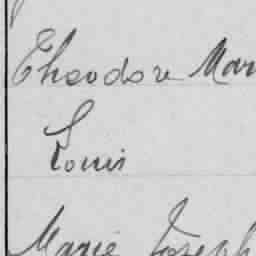 Theodore Mar
Louis
Marie Joseph